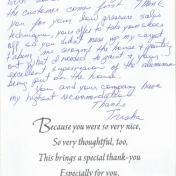 the customer first. Thank
you for your low pressure sales
technique, your offer to take shoes
off so you didn't mess up my carpet
me around the house & pointing
out what I needed to
excellent
being put on the house.
You and your company have
my highest recommendation.
Thanks
Trisha
Because you were so very nice,
So very thoughtful, too,
This brings a special thank-you
Especially for you.